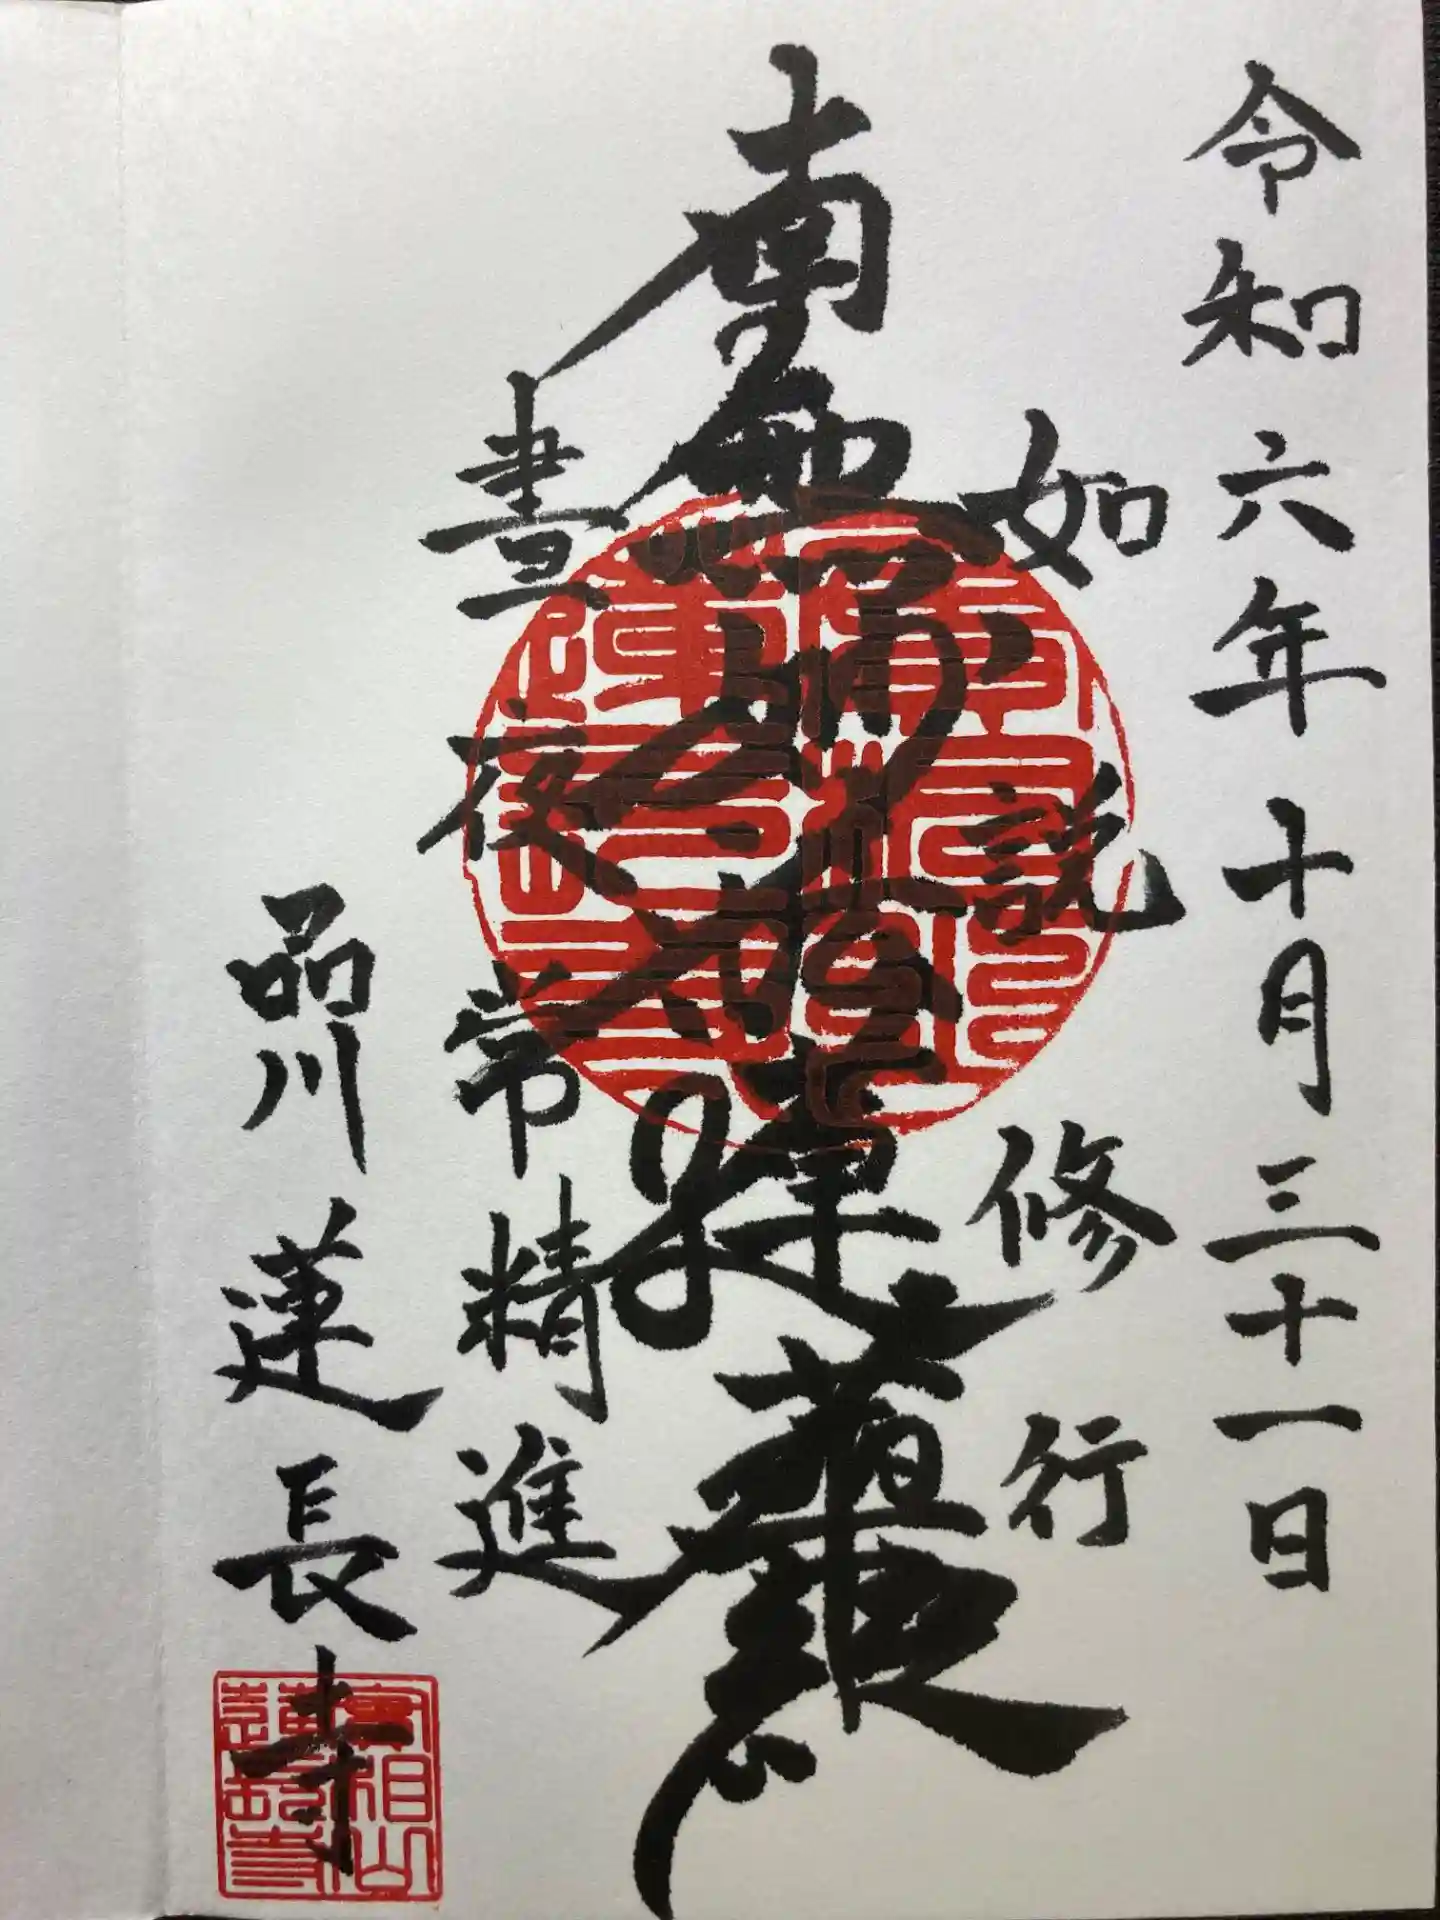 令和六年十月三十一日
如説修行
南無妙法蓮華経
晝夜常精進
品川蓮長寺
實相山
蓮長寺